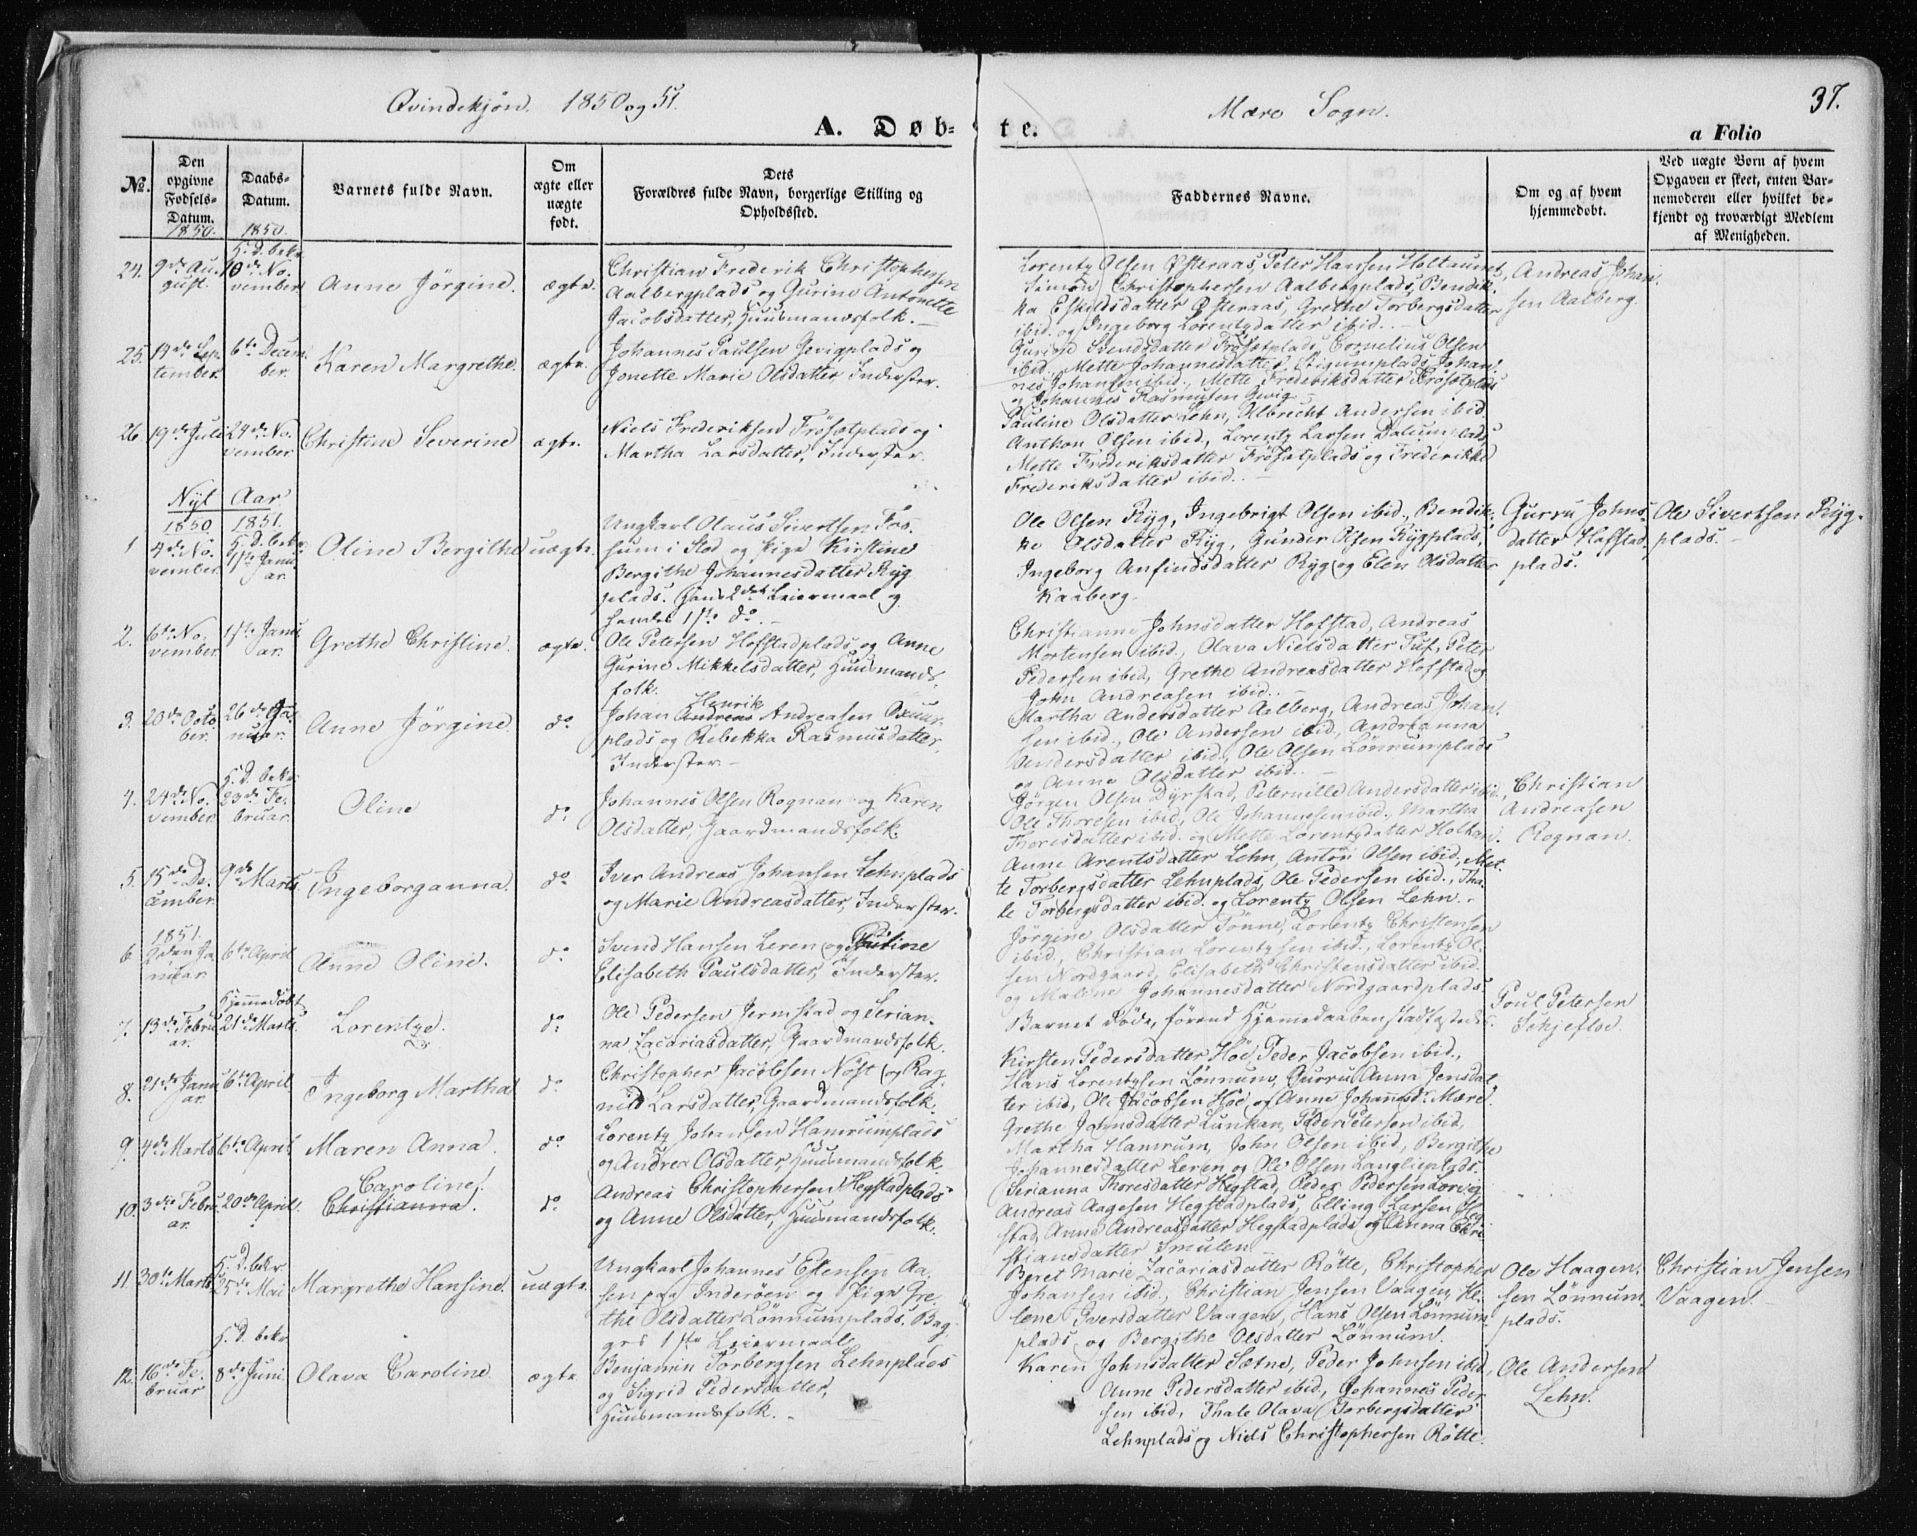 Qvindekjøn. 1850 og 51.
Mære Sogn.
37.
A. Døb-
te.
a Folio
No.
Den opgivne Fødsels-Datum. 1850.
Daabs-Datum. 1850.
Barnets fulde Navn.
Om ægte eller uægte født.
Dets Forældres fulde Navn, borgerlige Stilling og Opholdssted.
Faddernes Navne.
Om og af hvem hjemmedøbt.
Ved uægte Børn af hvem Opgaven er skeet, enten Barnemoderen eller hvilket bekjendt og troværdigt Medlem af Menigheden.
24. 9de August. H. D. bekr. 10de November Anne Jörgine. ægte.
Christian Frederik Christophersen
Aalbergplads og Gurine Antonette
Jacobsdatter, Huusmandsfolk.
Lorentz Olsen Østeraas, Peter Hansen Holtaunet,
Simon Christophersen Aalbergplads, Bendik-
ka Eskildsdatter Østeraas, Grethe Torbergsdatter
ibid. og Ingeborg Lorentzdatter ibid.
Andreas Johan-
sen Aalberg.
25. 14de September. 6te December. Karen Margrethe. ægte.
Johannes Paulsen Gevigplads og
Jonette Marie Olsdatter, Inderster.
Svendsdatter Frösetplads, Cornelius Olsen
ibid., Mette Johannesdatter, Johan-
nes Johansen ibid., Mette Frederiksdatter Frösetplads
og Johannes Rasmusen Gevig.
26. 19de Juli 24de November Christine Severine ægte.
Niels Frederiksen Frösetplads og
Martha Larsdatter, Inderster.
Pauline Olsdatter Lehn, Albrecht Andersen ibid.
Anthon Olsen ibid., Lorentz Larsen Dalumplads,
Mette Frederiksdatter Frösetplads og Frederikke
Frederiksdatter ibid.
Nyt Aar
1850 1851.
1 4de November H. D. bekr. 1ste Januar. Oline Bergithe uægte.
Ungkarl Olaus Sivertsen Fos-
sum i Stod og Pige Kirstine
Bergithe Johannesdatter Ryg
plads. Hans 2det Leiermaal og
hendes 1ste do.
Ole Olsen Ryg, Ingebrigt Olsen ibid., Bendik-
ke Olsdatter Ryg, Gunder Olsen Rygplads,
Ingeborg Anfindsdatter Ryg og Elen Olsdatter
Kaaberg.
Gurru Johns-
datter Hofstad-
plads.
Ole Sivertsen Ryg-
plads.
2. 6te November 1ste Januar. Grethe Christine. ægte.
Ole Petersen Hofstadplads og Anne
Gurine Mikkelsdatter, Huusmands-
folk.
Christianne Johnsdatter Hofstad, Andreas
Mortensen ibid., Olava Nielsdatter Tuf, Peter
Pedersen ibid, Grethe Andreasdatter Hofstad og
John Andreasen ibid.
3. 20de October. 26de Januar. Anne Jörgine. do
Henrik
Johan Andreas Andreasen
plads og Rebekka Rasmusdatter,
Inderster.
Martha Andersdatter Aalberg, Andreas Johan-
sen ibid., Ole Andersen ibid, Andrianna
Andersdatter ibid., Ole Olsen Lönnumplads
og Anne Olsdatter ibid.
4. 24de November. H. D. bekr. 23de Februar. Oline do.
Johannes Olsen Rognan og Karen
Olsdatter, Gaardmandsfolk.
Jörgen Olsen Dyrstad, Peternille Andersdatter ibid.
Ole Thoresen ibid, Ole Johannesen ibid., Martha
Thoresdatter ibid. og Mette Lorentzdatter
Christian
Andreasen
Rognan.
5. 15de December. 9de Marts Ingeborganna. do
Iver Andreas Johansen Lehnplads
og Marie Andreasdatter, Inderster.
Anne Arentsdatter Lehn, Anton Olsen ibid, Met-
te Torbergsdatter Lehnplads, Ole Pedersen ibid., Tha-
le Torbergsdatter ibid. og Lorentz Olsen Lehn.
1851.
6. Januar 6te April Anne Oline. do.
Svend Hansen Leren og
Elisabeth Paulsdatter, Inderster.
Jörgine Olsdatter Tönne, Lorentz Christensen
ibid., Christian Lorentzsen ibid., Lorentz Ol-
sen Nordgaard, Elisabeth Christensdatter ibid.
og Malene Johannesdatter Nordgaardplads.
7. 13de Februar. Hjemmedöbt 21de Marts. Lorentze. do:
Ole Pedersen Jermstad og Serian-
na Zacariasdatter, Gaardmandsfolk.
Barnet döde, förend Hjemmedaaben stadfæstedes.
Poul Petersen
Schjefloe.
8. 21de Januar. 6te April Ingeborg Martha do
Christopher Jacobsen Nöst og Rag-
nild Larsdatter, Gaardmandsfolk.
Kirsten Pedersdatter Höe, Peder Jacobsen ibid.,
Hans Lorentzsen Lönnum, Gurru Anna Jensdat-
ter ibid, Ole Jacobsen Höe og Anne Johannesd. Mære.
9. 4de Marts 6te April Maren Anna. do
Lorentz Johansen Hamrumplads
og Andrea Olsdatter, Huusmandsfolk.
Grethe Johnsdatter Lunkan, Peder Petersen ibid,
Martha Hamrum, John Olsen ibid, Bergithe
Johannesdatter Leren og Ole Olsen Langlieplads.
10. 3die Februar. 20de April. Caroline. Christianna. do.
Andreas Christophersen Hegstadplads
og Anne Olsdatter, Huusmandsfolk.
Serianna Thoresdatter Hegstad, Peder Pedersen Lorvig
Andreas Aagesen Hegstadplads, Elling Larsen Heg-
stad, Anne Andreasdatter Hegstadplads og Anna Chri-
stiansdatter Smulen.
11. 30te Marts H. D. bekr. 25de Mai Margrethe Hansine. uægte.
Ungkarl Johannes Estensen Aa-
sen paa Inderöen og Pige Gre-
the Olsdatter Lönnumplads. Beg-
ges 1ste Leiermaal.
Beret Marie Zacariasdatter Rötte, Christopher
Johansen ibid., Christian Jensen Vaagen, He-
lene Iversdatter Vaagen, Hans Olsen Lönnum-
plads og Bergithe Olsdatter Lönnum.
Ole Haagen-
sen Lönnum-
plads.
Christian Jensen
Vaagen.
12. 16de Februar H. D. bekr. 8de Juni Olava Caroline. ægte
Benjamin Torbergsen Lehnplads
og Sigrid Pedersdatter,
Huusmandsfolk.
Karen Johnsdatter Sætne, Peder Johnsen ibid.,
Anne Pedersdatter ibid., Johannes Peder-
sen ibid, Thale Olava Torbergsdatter
Lehnplads og Niels Christophersen Rötte.
Ole Andersen
Lehn.